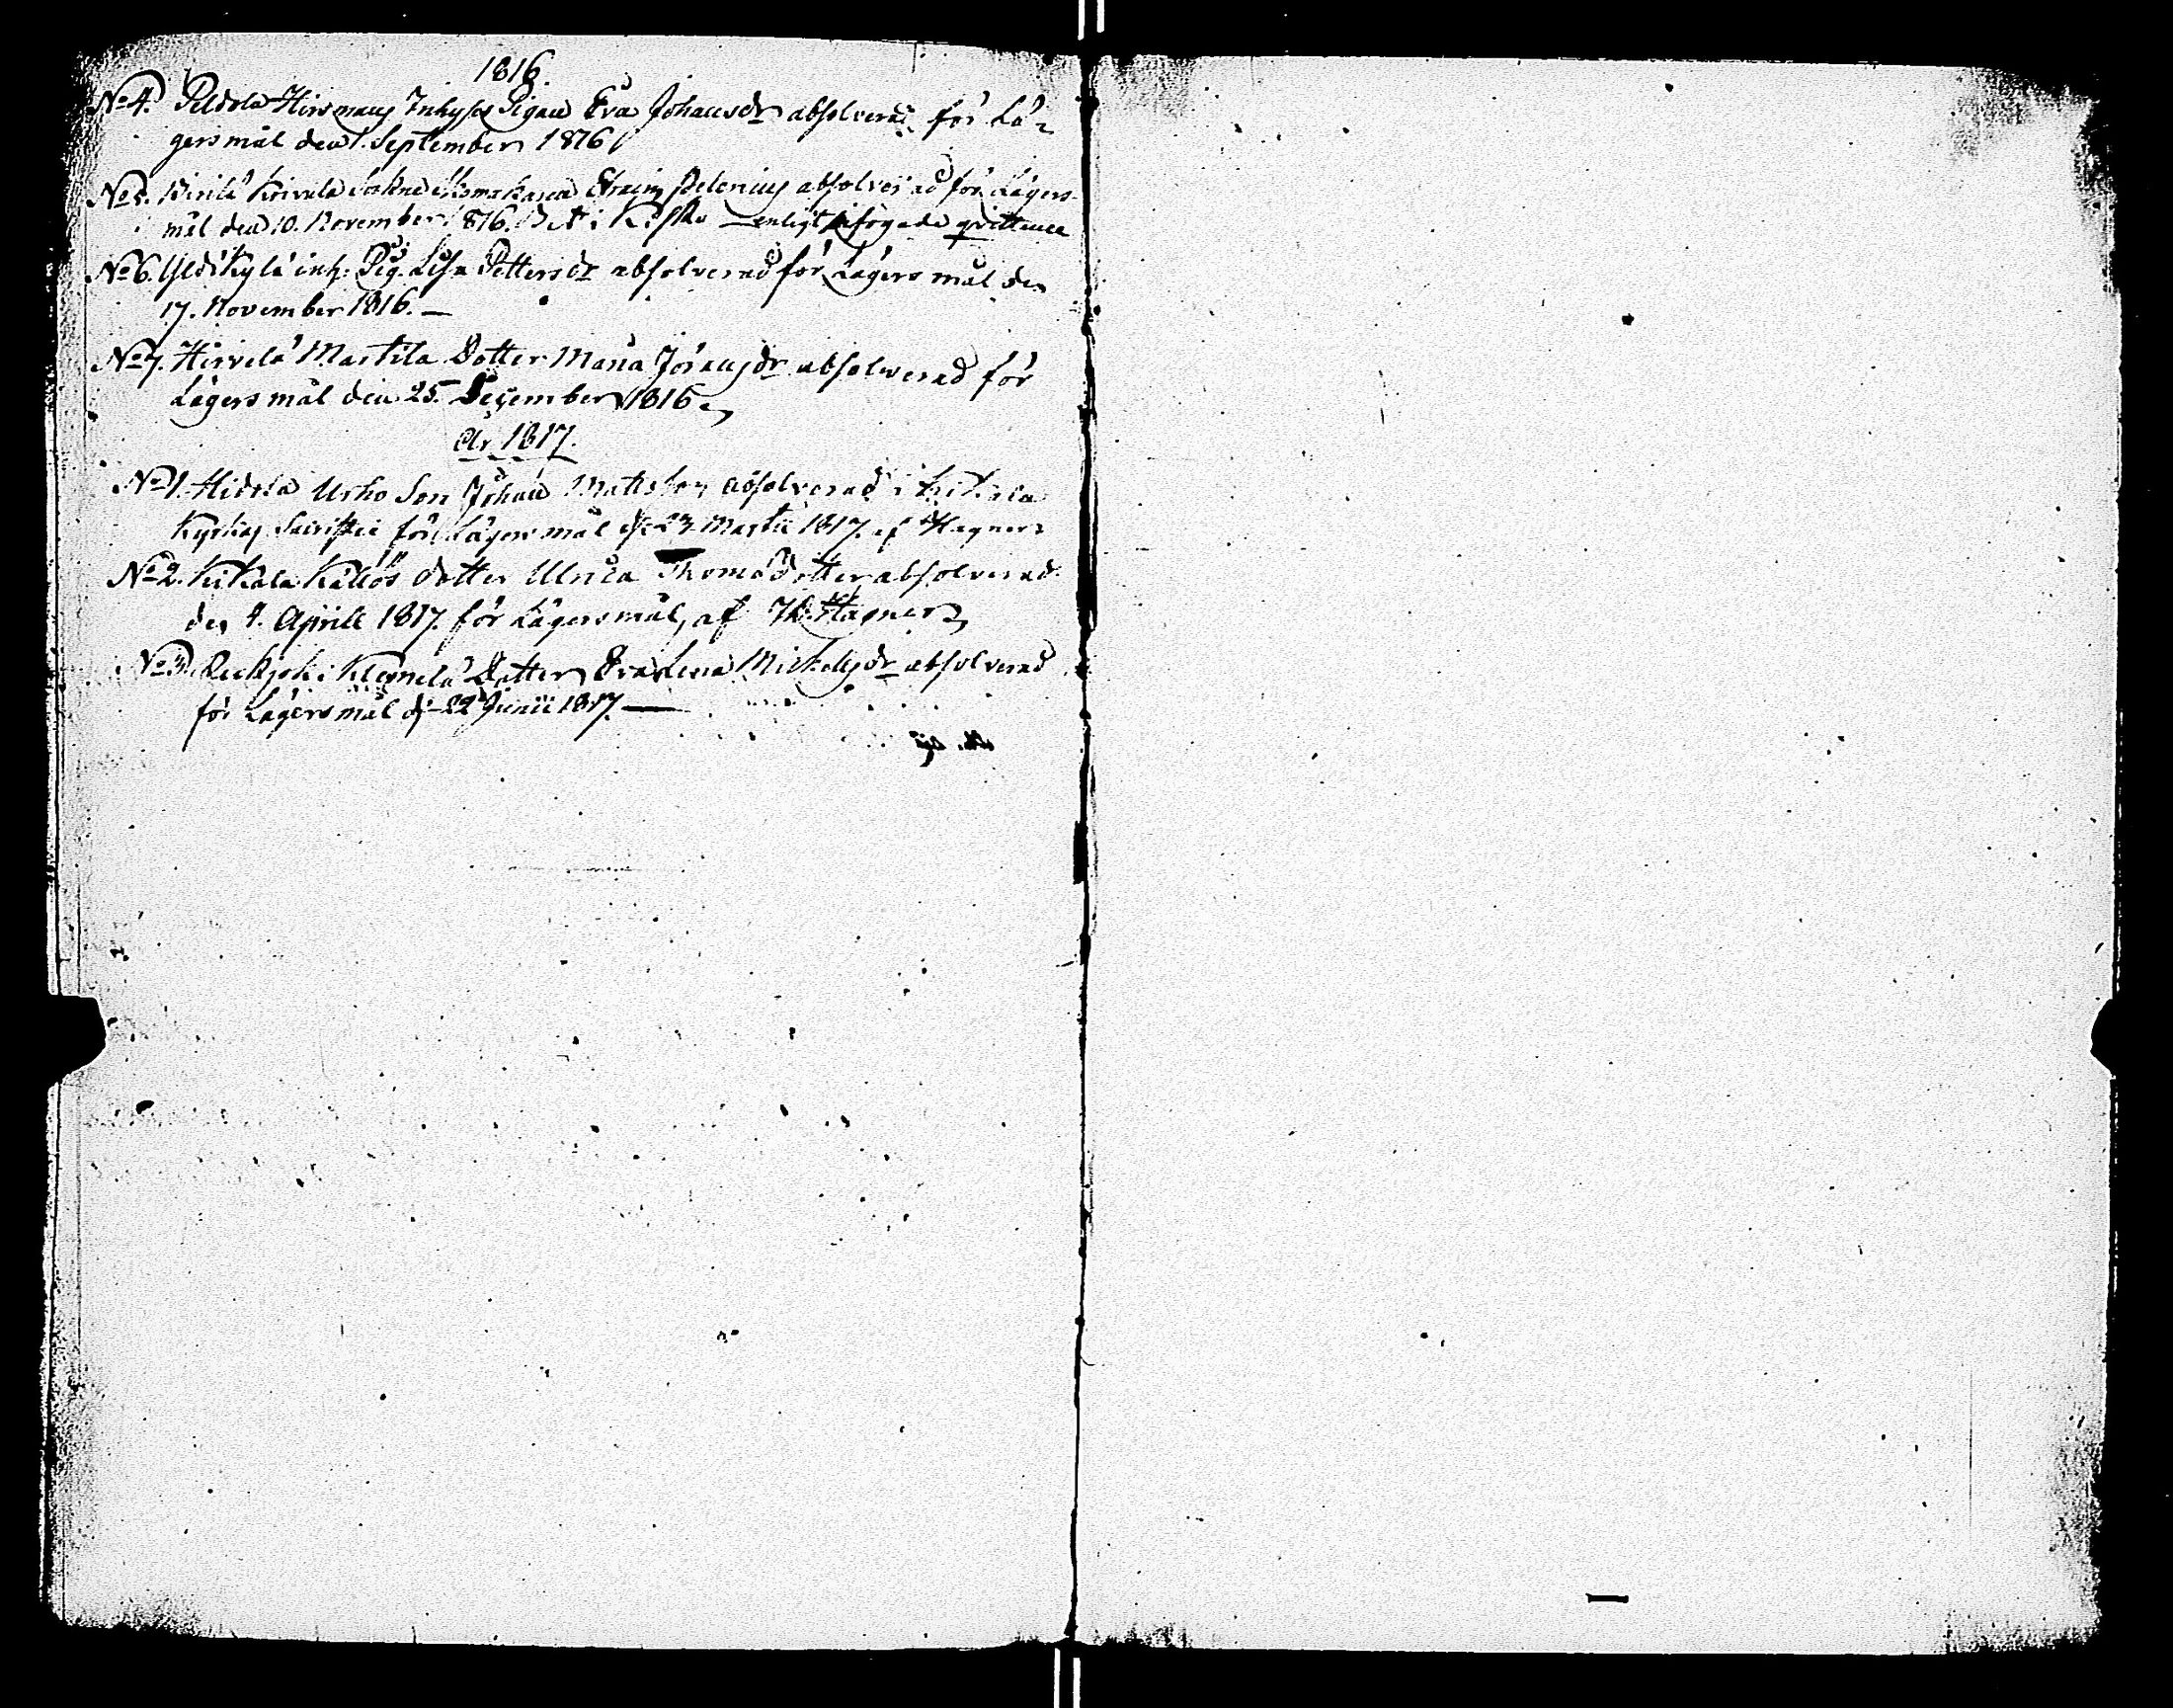 1816.
No 4. Peldola Hirsmans Inhyses Pigan Eva Johansdr absolverad för Lä=
gersmål den 1. September 1816
No 5. Kirivla Sockne Skomakaren absolverad för Lägers-
mål den 10. November 1816. i Kisko enligt bifogade qvittence
No 6. Yldikylä inh: Pig. Lisa Pettersdr absolverad för Lägersmål den
17. November 1816. —
No 7. Hirvelä Martila Dotter Maria Jöransdr absolverad för
Lägersmål den 25. December 1816
År 1817.
No 1. Hidola Usko Son Johan Mattsson absolverad i Kikala
Kyrkas Sacristie för Lägersmål d: 23 Martii 1817. af Hagner
No 2. Kikala Källös dotter Ulrica Thomædotter absolverad
den 4. Aprill 1817. för Lägersmål, af Hagner
No 3. Rekijoki Klemelä Dotter Eva Lena Michelsdr absolverad
för Lägersmål d: 22 Junii 1817. —